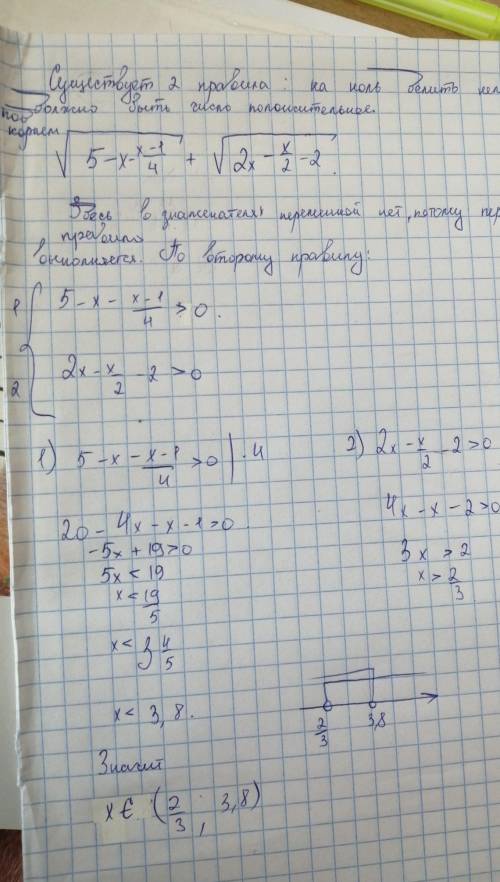 Существует 2 правила: на ноль делить нел
под должно быть число положительное.
корнем
√(5-x-(x-1)/4) + √(2x-x/2-2).
Здесь в знаменателях переменной нет, потому пер
правило
выполняется. По второму правилу:
1 { 5-x-(x-1)/4 > 0.
2 { 2x-x/2-2 > 0
1) 5-x-(-x-1)/4 > 0 | ·4
20-4x-x-1>0
-5x+19>0
5x<19
x<19/5
x<3 4/5
x<3,8.
2) 2x-x/2-2>0
4x-x-2>0
3x>2
x>2/3
2/3 3,8
Значит
x∈(2/3; 3,8)